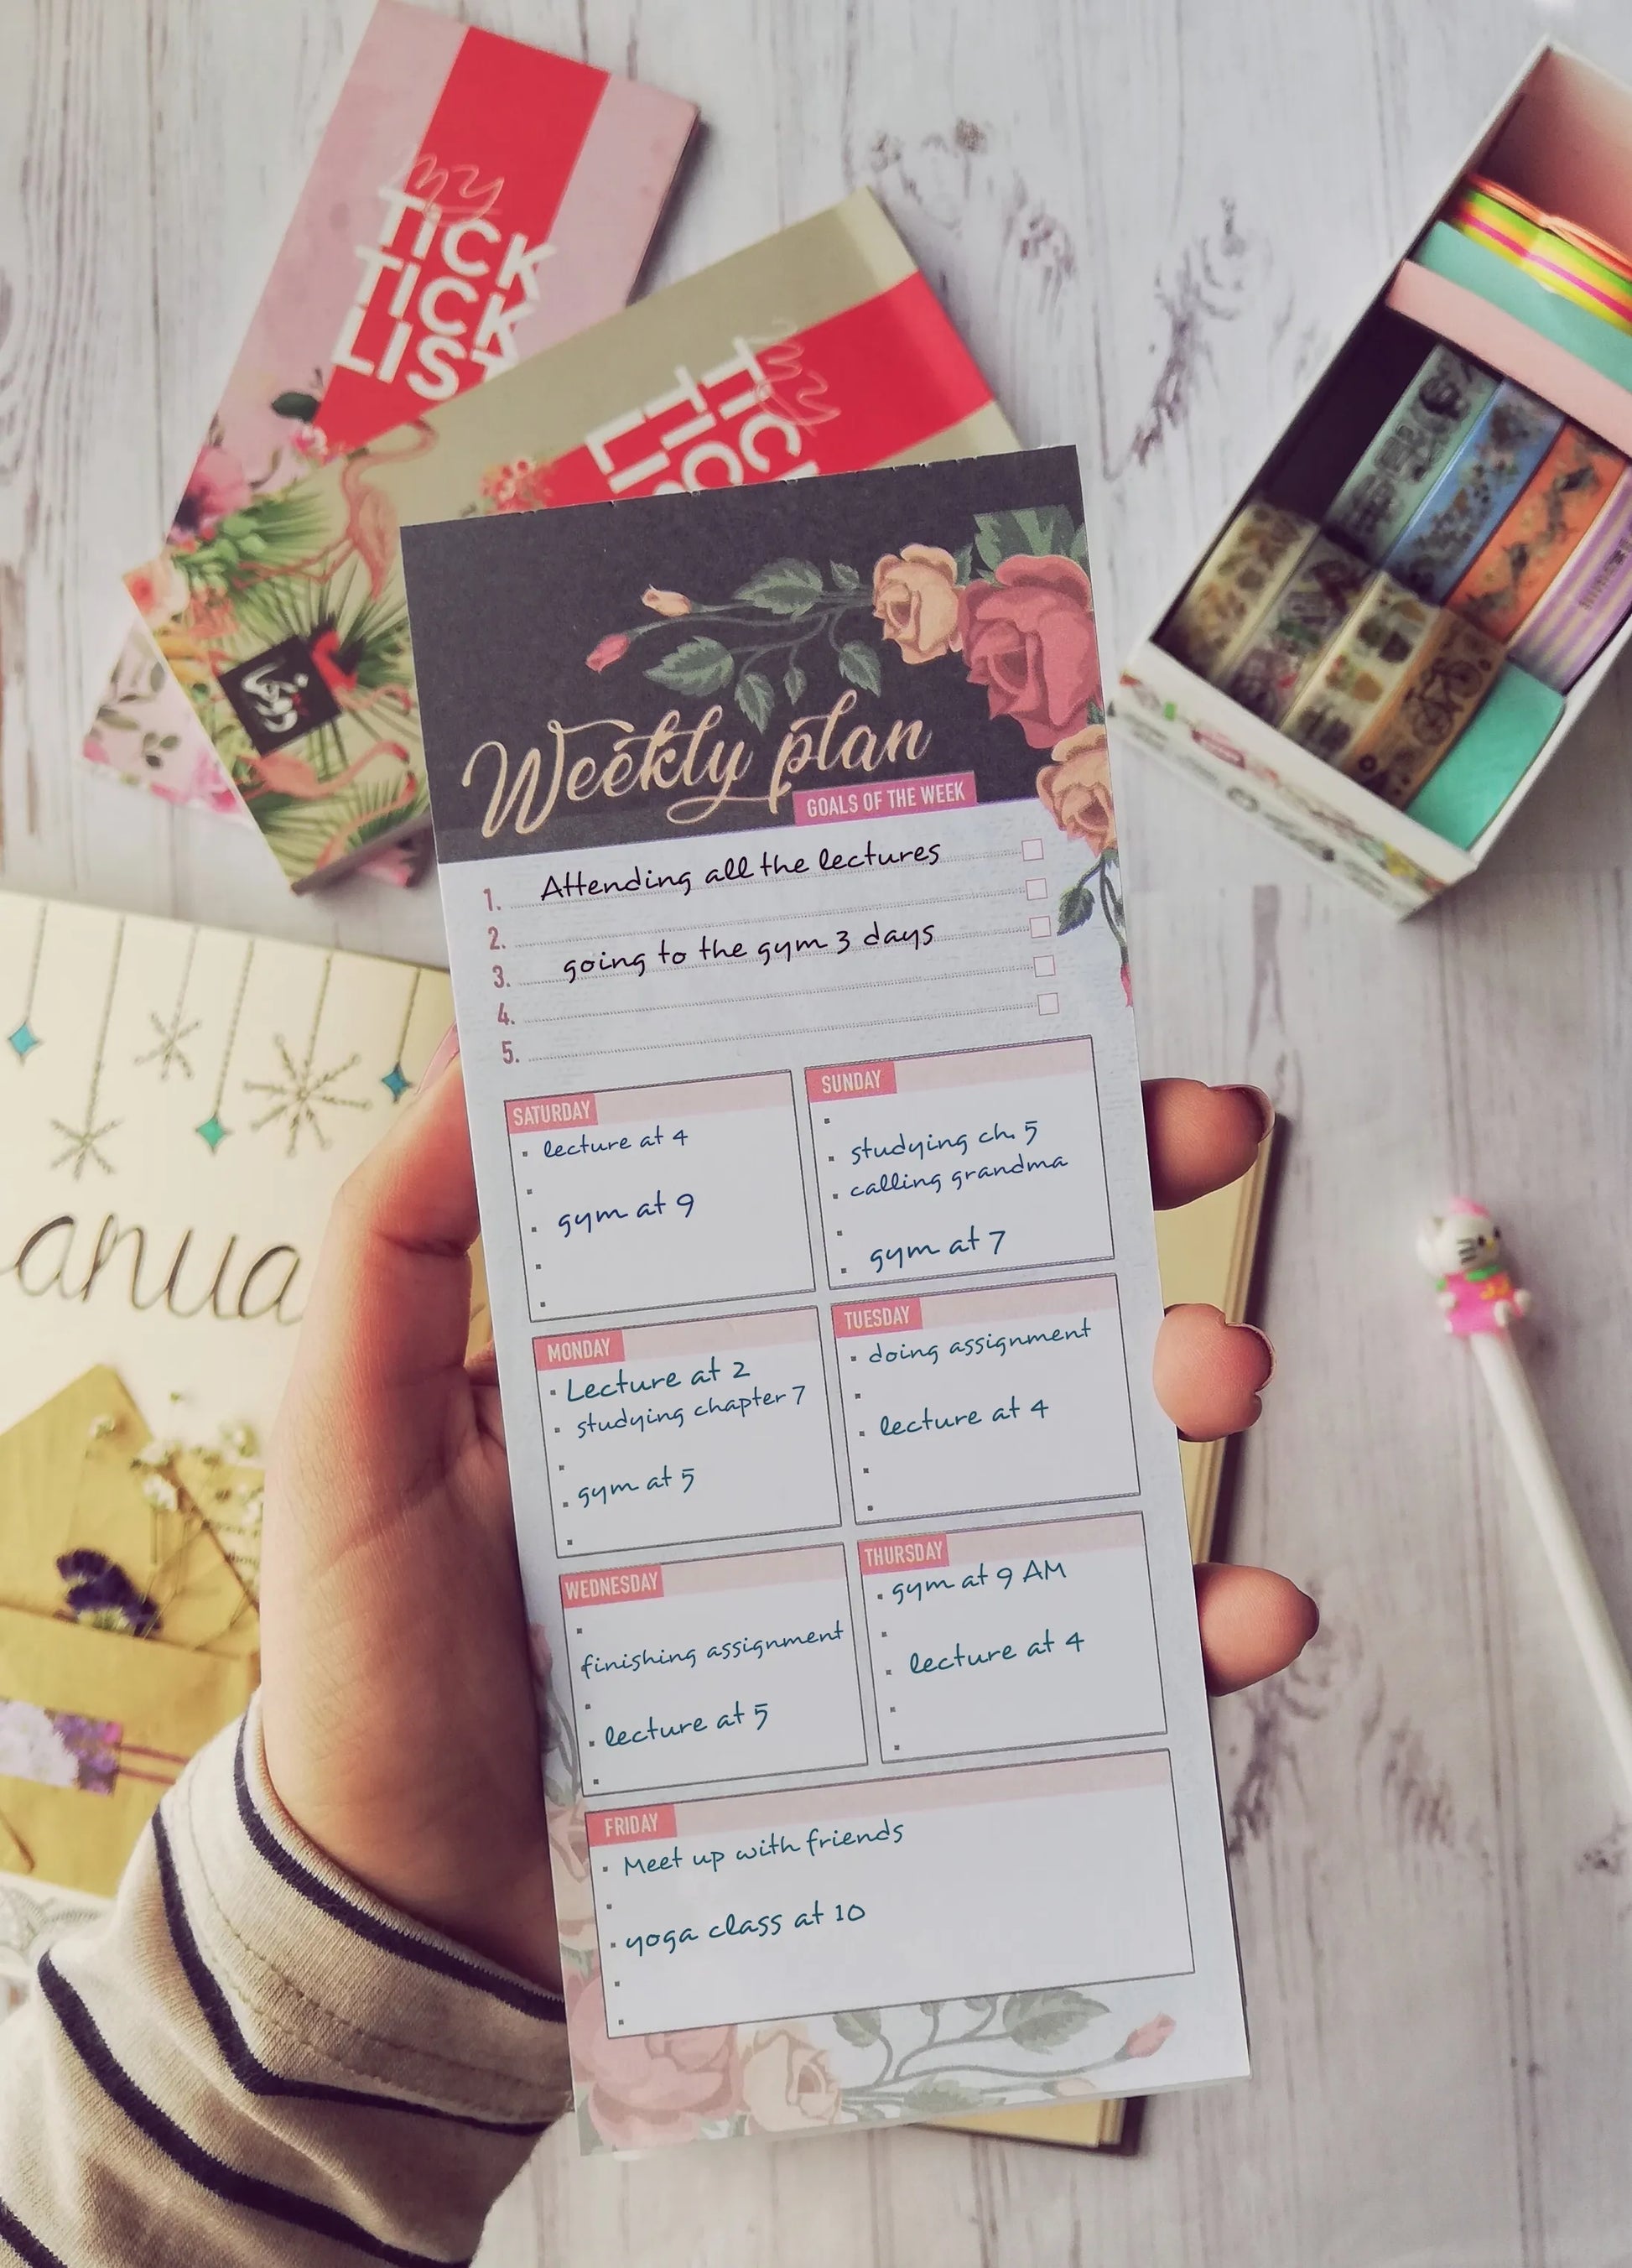 my
TICK
TICK
LIST
my
TIC
TIC
LIS
Weekly plan
GOALS OF THE WEEK
1. Attending all the lectures
2.
3. going to the gym 3 days
4.
5.
SATURDAY
lecture at 4
gym at 9
SUNDAY
studying ch. 5
calling grandma
gym at 7
MONDAY
Lecture at 2
studying chapter 7
gym at 5
TUESDAY
doing assignment
lecture at 4
WEDNESDAY
finishing assignment
lecture at 5
THURSDAY
gym at 9 AM
lecture at 4
FRIDAY
Meet up with friends
yoga class at 10
anua